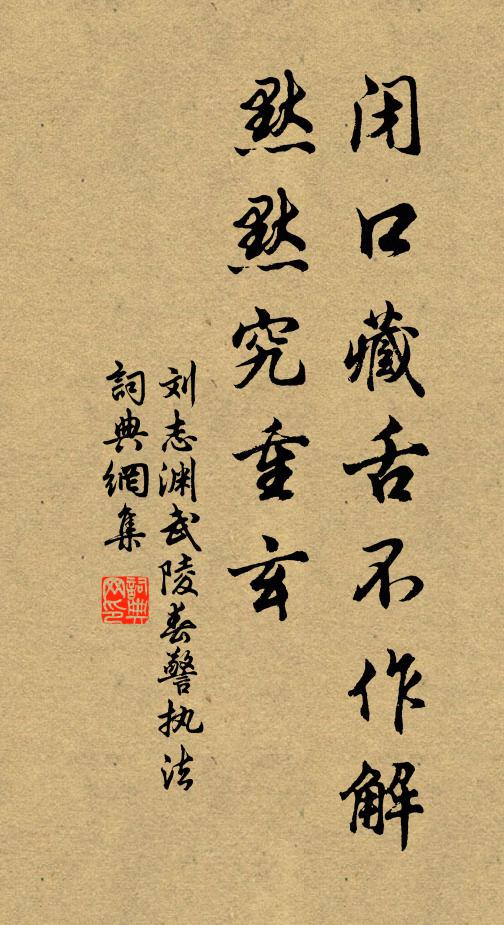 闭口藏舌不作解
默默究重玄
刘志渊武陵春警执法
詞典網集
詞典网印